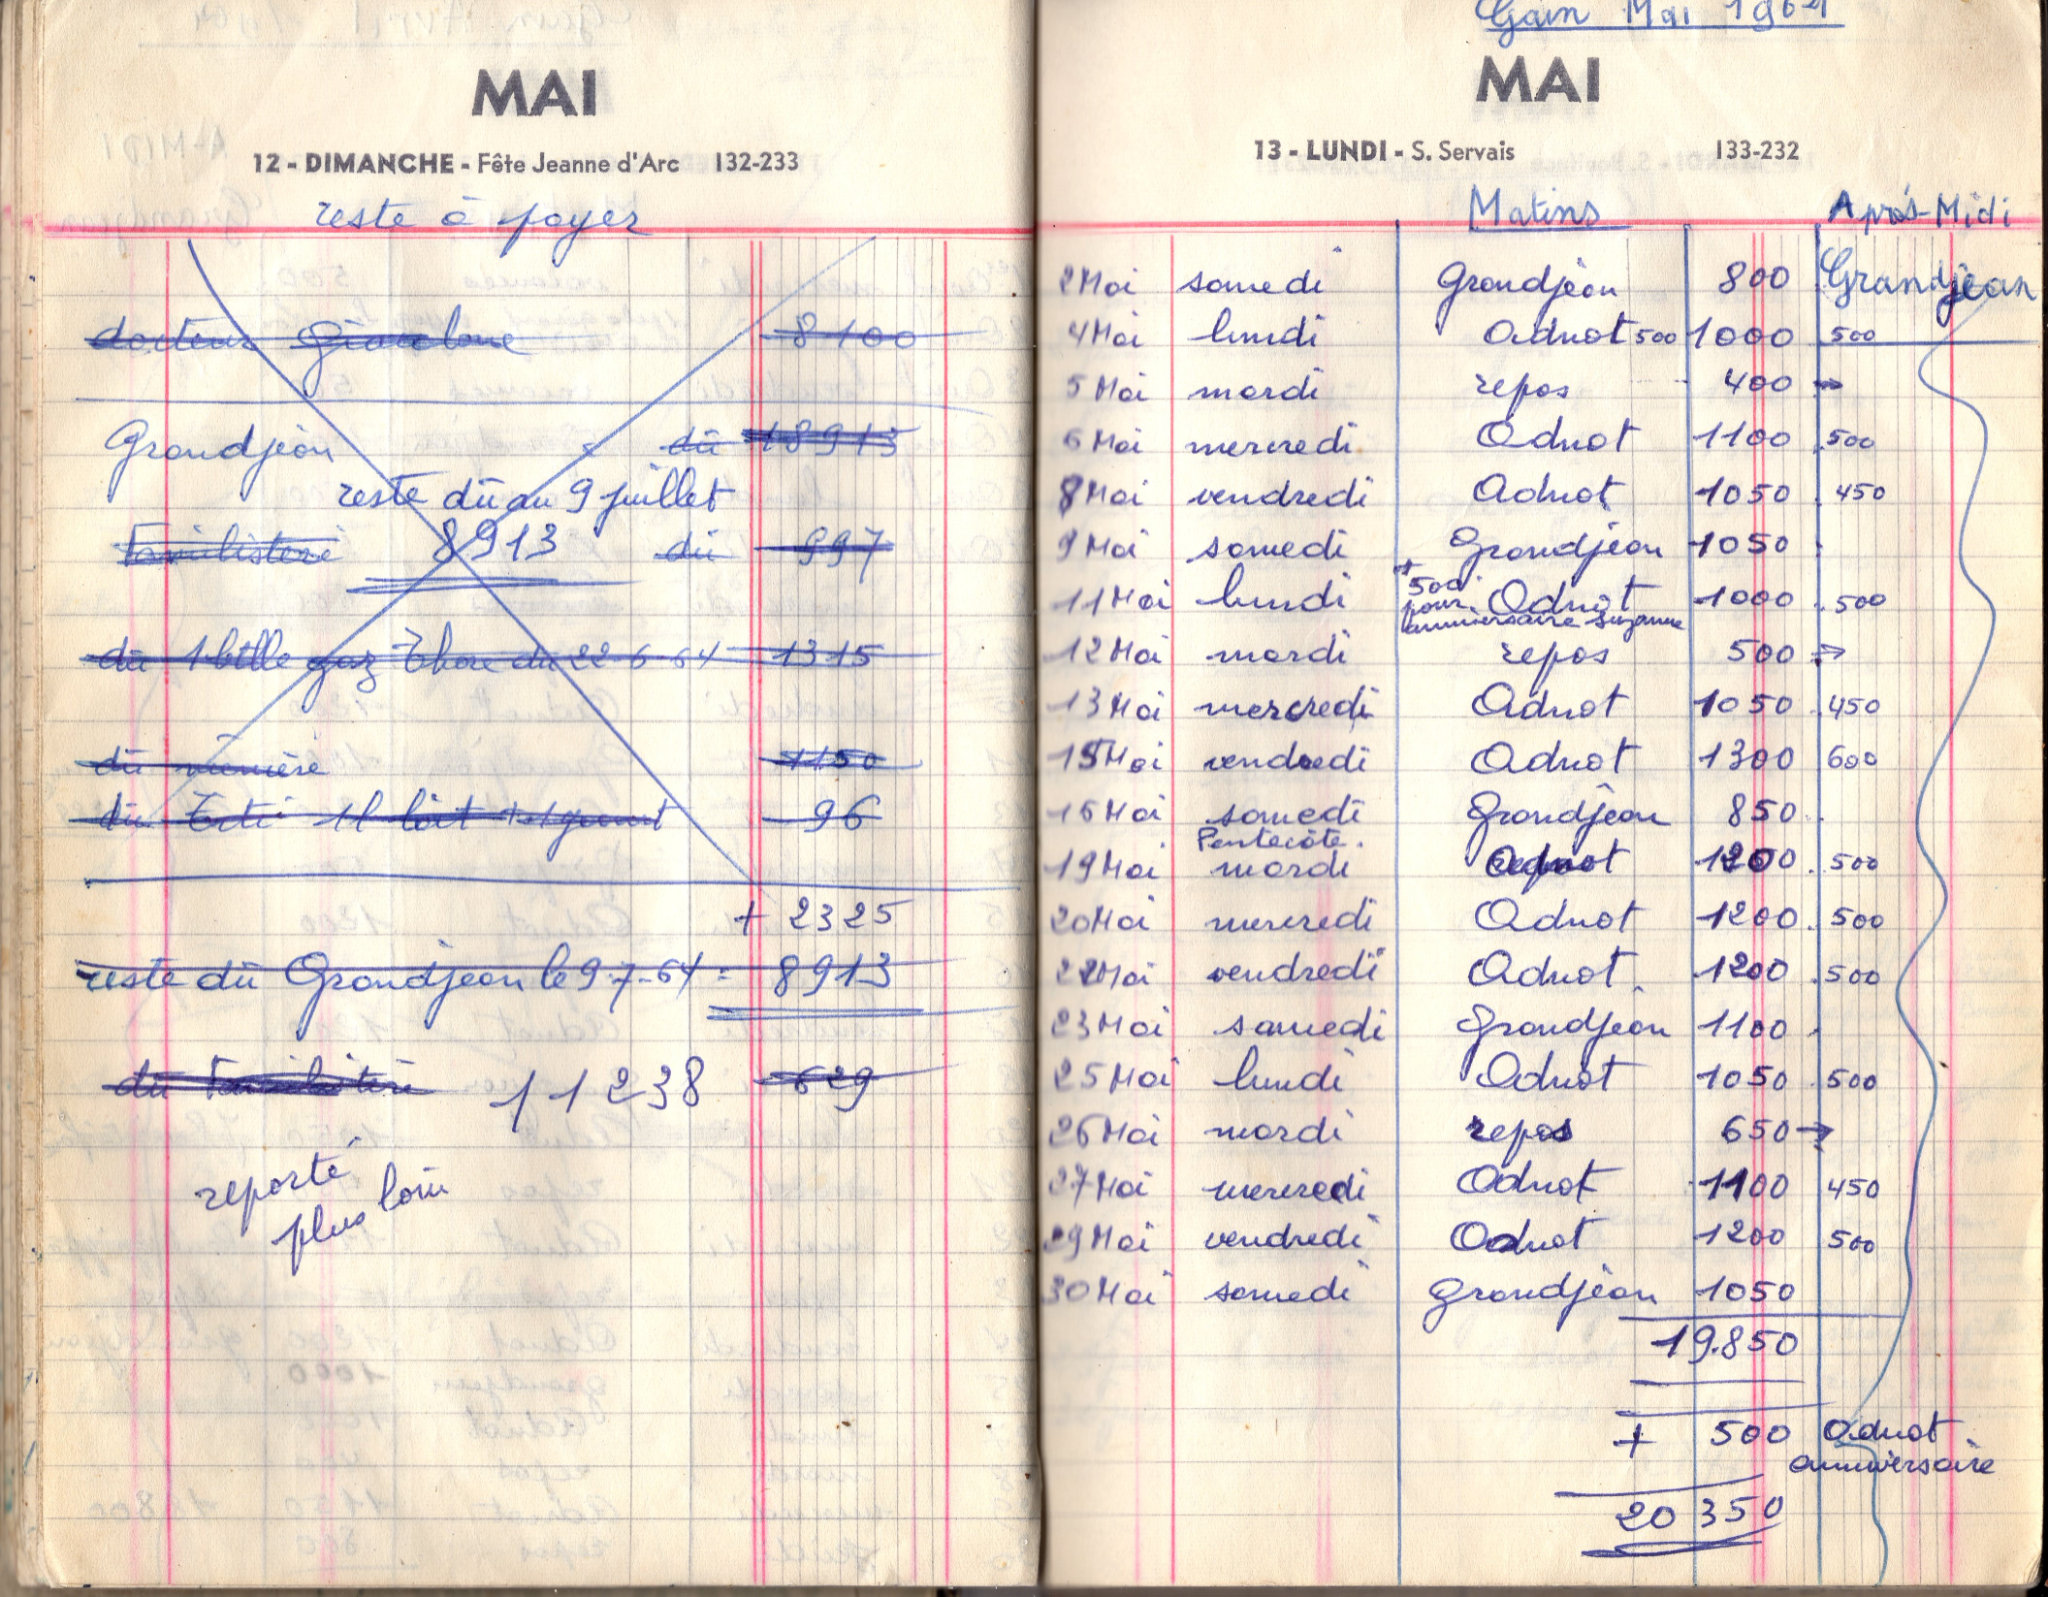 MAI
12 - DIMANCHE - Fête Jeanne d'Arc 132-233
reste à payer
docteur 8100
Grandjean dû 18913
reste dû au 9 juillet
Familistère 8913 dû 997
dû 1 btlle gaz du 22-6-64 1315
dû mémère 1150
dû 1 l lait + 96
+ 2325
reste dû Grandjean le 9-7-64 = 8913
dû Familistère 11238 629
reporté
plus loin
Gain Mai 1964
MAI
13 - LUNDI - S. Servais 133-232
Matins Après-Midi
2 Mai samedi Grandjean 800 Grandjean
4 Mai lundi Adnot 500 1000 500
5 Mai mardi repos 400 →
6 Mai mercredi Adnot 1100 500
8 Mai vendredi Adnot 1050 450
9 Mai samedi Grandjean 1050
11 Mai lundi + 500 pour anniversaire Suzanne Adnot 1000 500
12 Mai mardi repos 500 →
13 Mai mercredi Adnot 1050 450
15 Mai vendredi Adnot 1300 600
16 Mai samedi Grandjean 850
Pentecôte.
19 Mai mardi Adnot 1200 500
20 Mai mercredi Adnot 1200 500
22 Mai vendredi Adnot 1200 500
23 Mai samedi Grandjean 1100
25 Mai lundi Adnot 1050 500
26 Mai mardi repos 650 →
27 Mai mercredi Adnot 1100 450
29 Mai vendredi Adnot 1200 500
30 Mai samedi Grandjean 1050
19.850
+ 500 Adnot
anniversaire
20 350